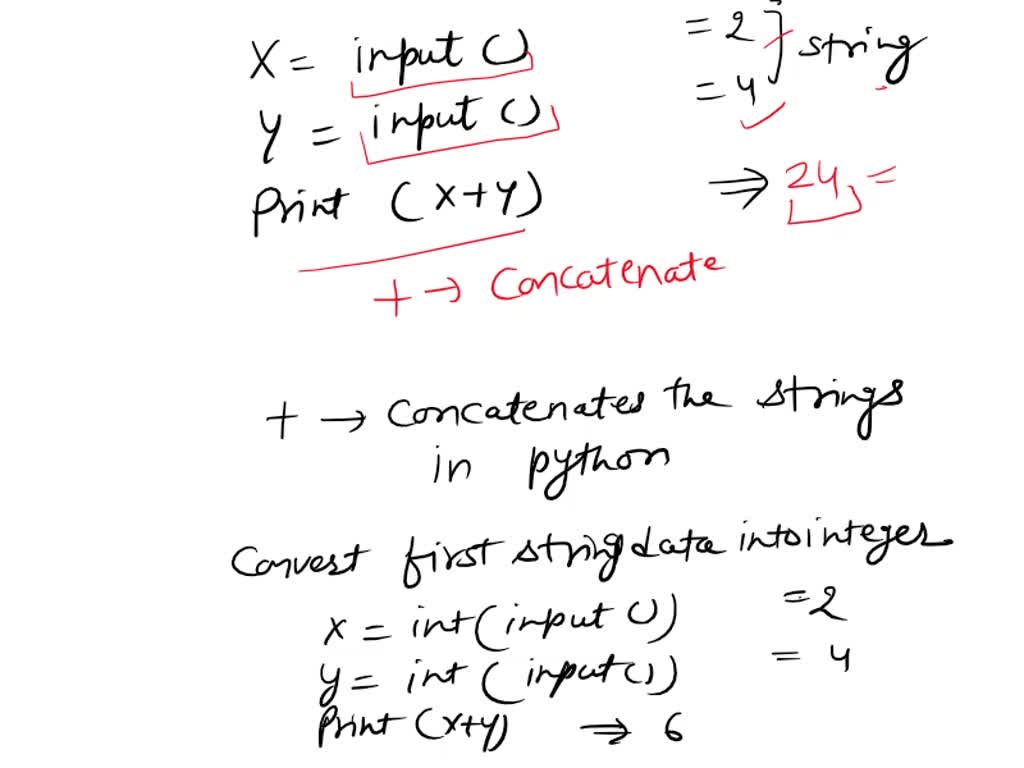 X = input () = 2
Y = input () = 4 string
Print (X+Y) ⇒ 24 =
+ → Concatenate
+ → Concatenates the strings
in python
Convert first string data into integer.
X = int(input ()) = 2
y = int (input()) = 4
Print (X+y) ⇒ 6